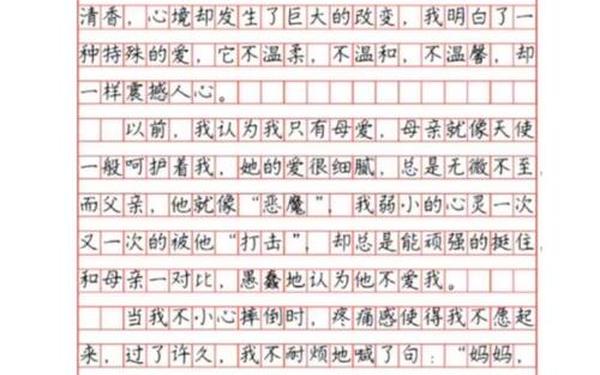 清香，心境却发生了巨大的改变，我明白了一
种特殊的爱，它不温柔，不温和，不温馨，却
一样震撼人心。
以前，我认为我只有母爱，母亲就像天使
一般呵护着我，她的爱很细腻，总是无微不至，
而父亲，他就像“恶魔”，我弱小的心灵一次
又一次的被他“打击”，却总是能顽强的挺住，
和母亲一对比，愚蠢地认为他不爱我。
当我不小心摔倒时，疼痛感使得我不愿起
来，过了许久，我不耐烦地喊了句：“妈妈，